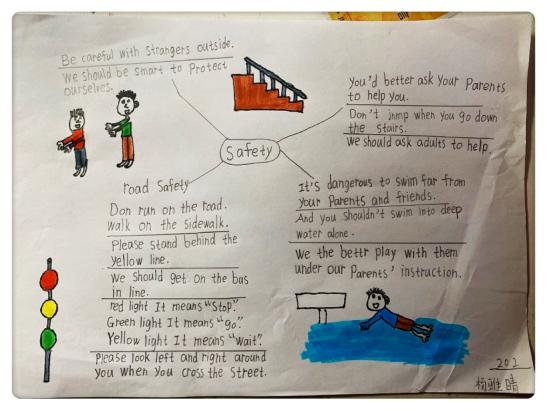 Be careful with strangers outside.
We should be smart to Protect
ourselves.
You'd better ask your Parents
to help you.
Don't jnmp when you go down
the stairs.
We should ask adults to help.
Safety
road Safety
Don run on the road.
walk on the sidewalk.
Please stand behind the
yellow line.
We should get on the bus
in line.
red light It means "Stop".
Green light It means "go".
Yellow light It means "wait".
Please look left and right around
you when you cross the Street.
It's dangerous to swim far from
your Parents and friends.
And you shouldn't swim into deep
water alone.
We the bettr play with them
under our Parents' instruction.
202
杨雅晴